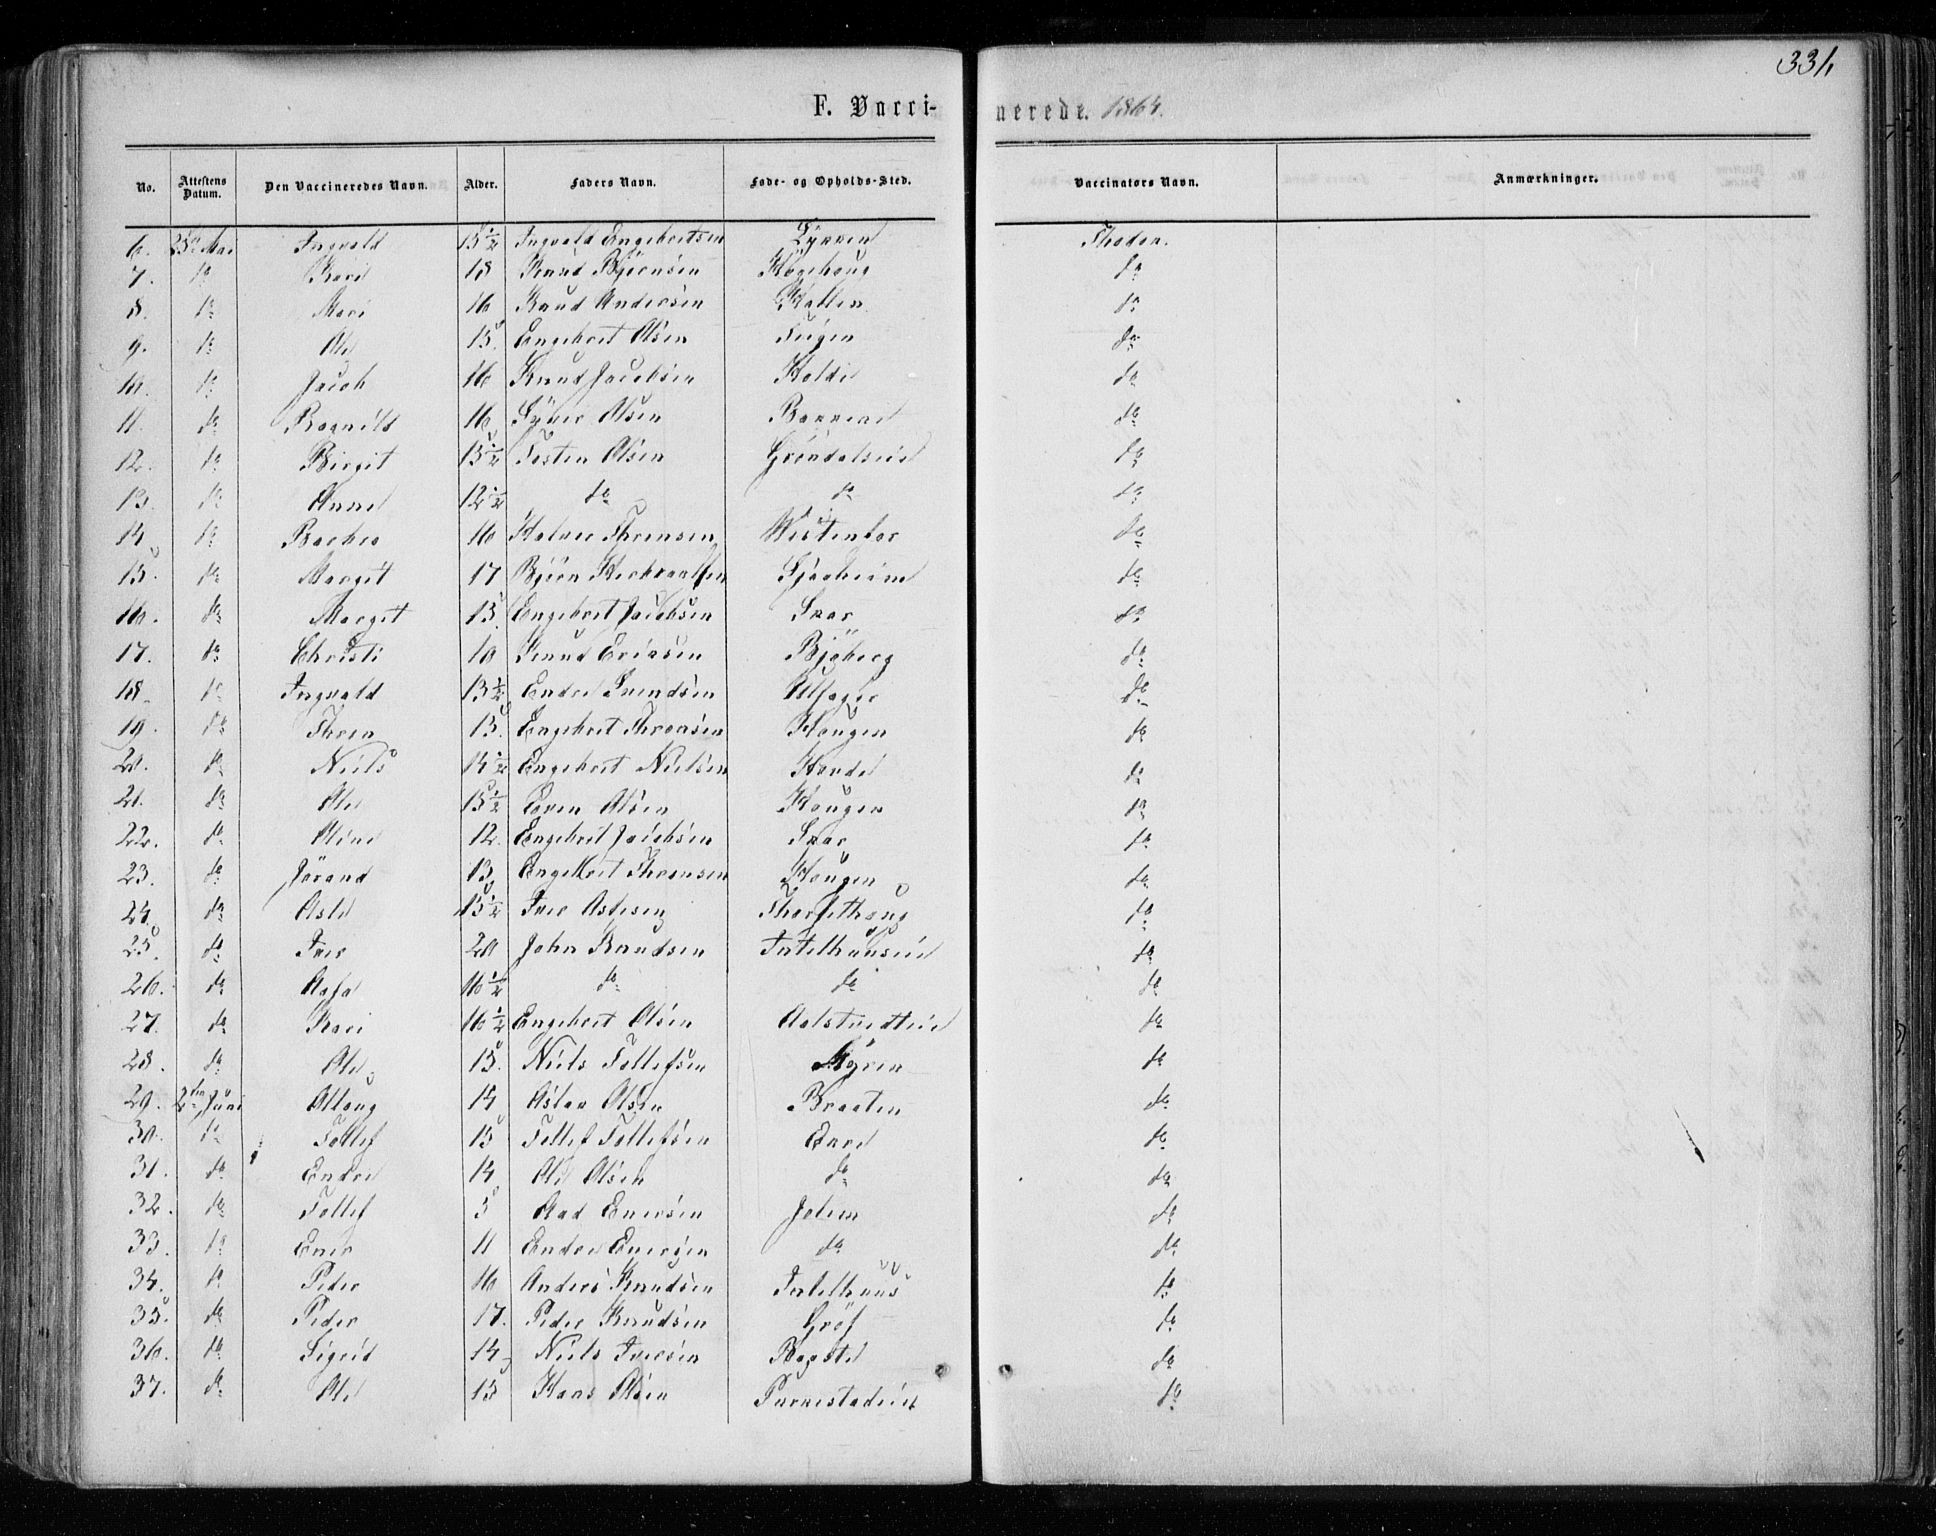 331.
F. Vacci- nerede. 1864.
No. Attestens Datum. Den Vaccineredes Navn. Alder. Faders Navn. Føde- og Opholds-Sted. Vaccinators Navn. Anmærkninger.
6. 25 Mai Ingvald 15 1/2 Ingvald Engebertsen Thoden.
7. do Kari 18 Knud Bjørnsen Høgehaug do
8. do Mari 16 Knud Andersen do
9. do Ole 15. Engebret Olsen Teigen do
10. do Jacob 16 Knud Jacobsen Holde do
11. do Ragnild 16 Syver Olsen do
12. do Birgit 15 1/2 Tosten Olsen Gröndalseie do
13. do Anne 12 1/2 do do do
14 do 16 Halvor Thronsen Westenbor do
15. do Margit 17 Bjørn do
16. do Margit 15. Engebret Jacobsen do
17. do Christi 10 Knud Ericsen Bjøberg do
18. do Ingvald 13 1/2 Endre Svendsen do
19. do Thron 15. Engebret Thronsen Haugen do
20. do Niels 14 1/2 Engebret Nielsen do
21. do Ole 15 1/2 Even Olsen Haugen do
22. do Oline 12. Engebret Jacobsen do
23. do Jörand 13. Engebret Thronsen Haugen do
24. do Asle 15 1/2 Iver Aslesen do
25. do Iver 20 John Knudsen Intelhuuseie do
26. do 16 1/2 do do do
27. do Kari 16 1/2 Engebret Olsen do
28. do Ole 15. Niels Tollefsen Myren do
29. 2den Juni 14 Aslav Olsen Braaten do
30. do Tollef 15 Tollef Tollefsen do
31. do Endre 14 Ole Olsen do do
32. do Tollef 5 do
33. do 11 Endre do do
34. do Peder 16 Anders Knudsen Intelhuus do
35. do Peder 17. Peder Knudsen Gröf do
36. do Sigrid 14 Niels Iversen do
37. do Ole 15 Olsen do